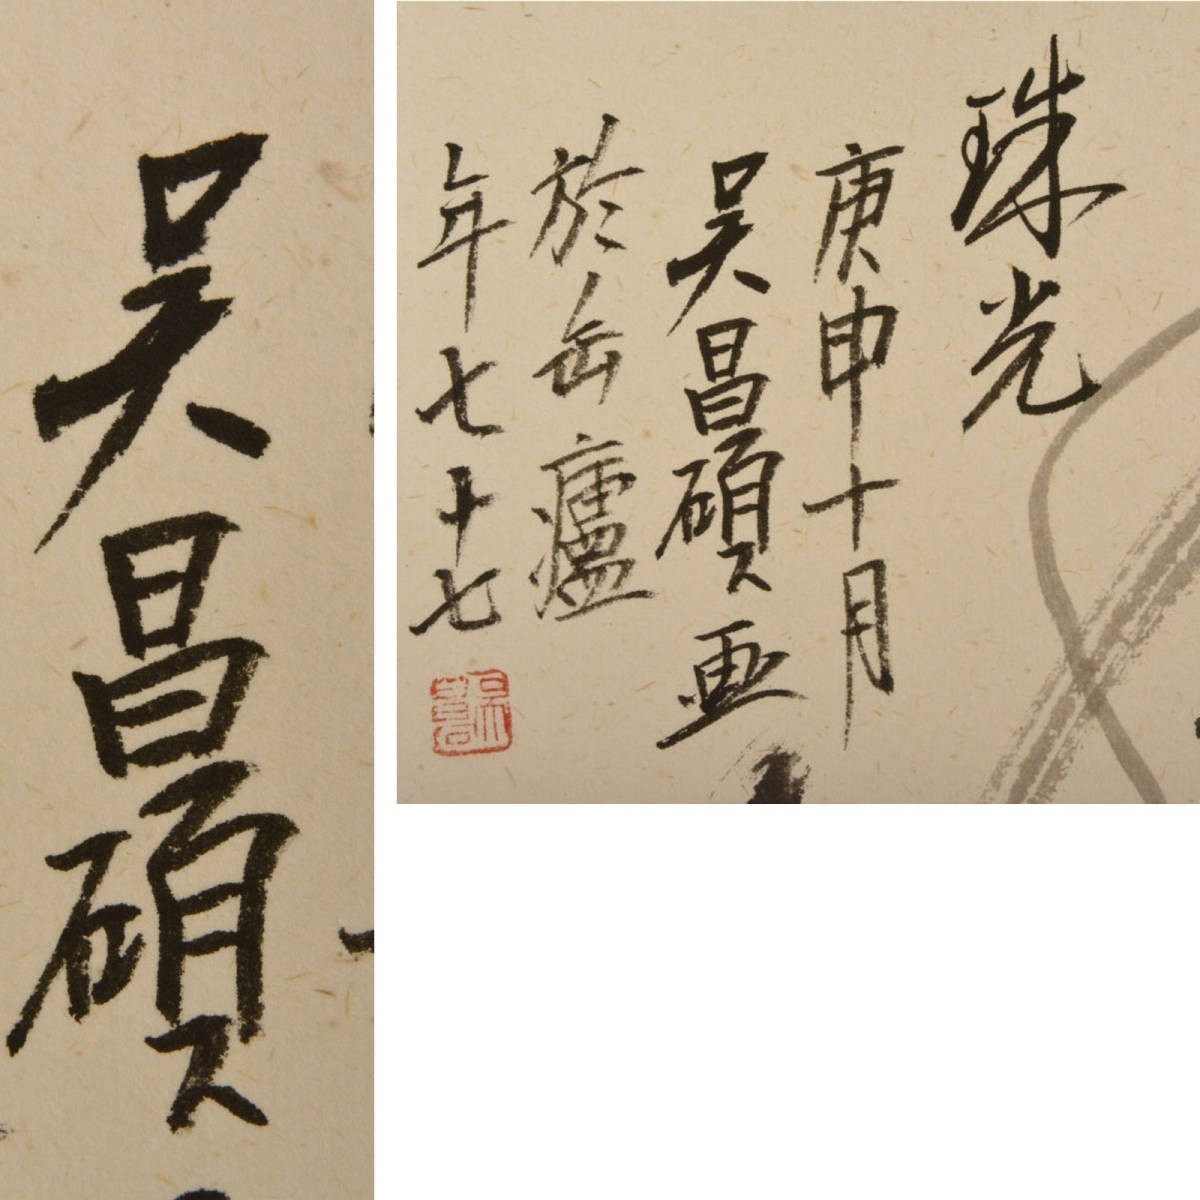 吴昌碩
珠光
庚申十月
吴昌碩画
於缶廬
年七十七